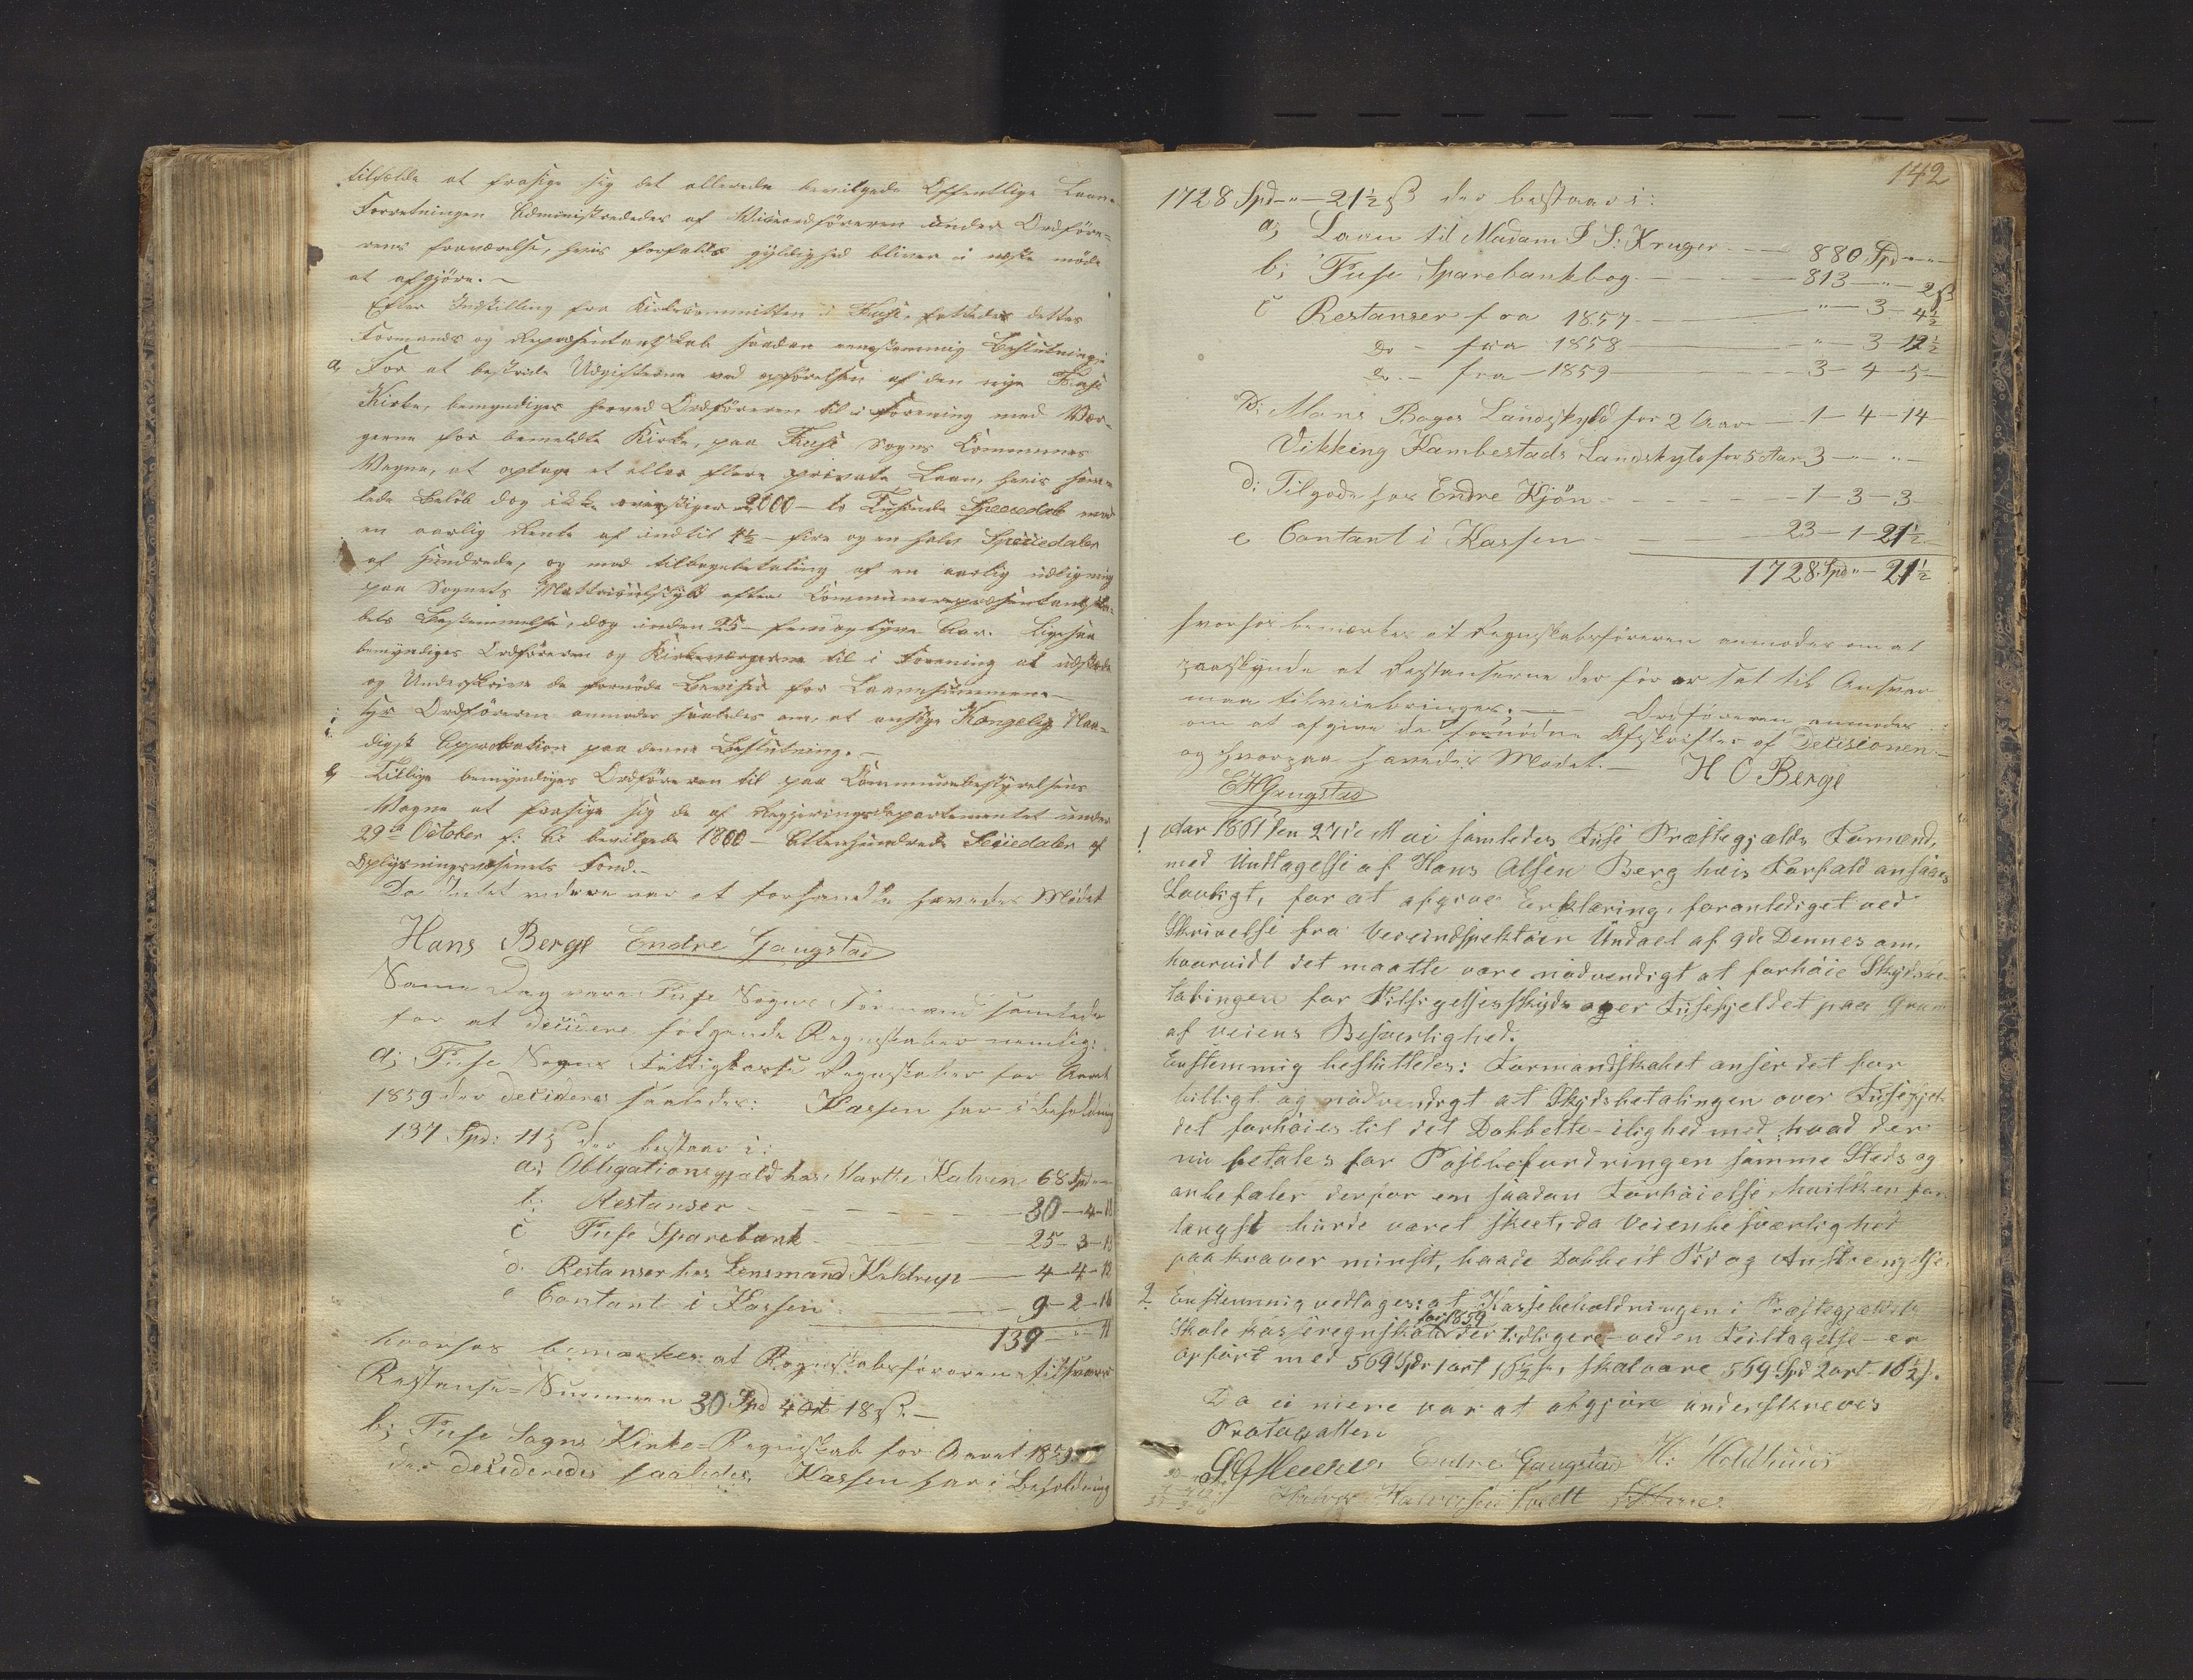 tilfælde at frasige sig det allerede bevilgede Offentlige Laan.
Forretningen Administrededes af Viceordföreren under Ordföre-
rens fraværelse, hvis forfalds gyldighed bliver i næste möde
at afgjöre. —
Efter Indstilling fra Kirkecommitten i Fuse, fattedes dettes
Formands og Repræsentantskab saadan eenstemmig Beslutning:
a, For at bestride Udgifterne ved opförelsen af den nye Fuse
Kirke, bemyndiges herved Ordföreren til i Forening med Vær-
gerne for bemeldte Kirke, paa Fuse Sogns Communes
Vegne, at optage et eller flere private Laan, hvis sam-
lede Belöb dog ikke overstiger 2000 — to Tusinde Speciedaler mod
en aarlig Rente af indtil 4½ — fire og en halv Speciedaler
af Hundrede, og mod tilbagebetaling af en aarlig udligning
paa Sognets Mattriculskyld efter Communerepræsentantska-
bets Bestemmelse, dog inden 25 — fem og tyve Aar. Ligesaa
bemyndiges Ordföreren og Kirkeværgerne til i Forening at udstæde
og Underskrive de fornödne Beviser for Laanesummene —
Hr Ordföreren anmodes saaledes om, at ansöge Kongelig Naa-
digst Approbation paa denne Beslutning. —
b, Tillige bemyndiges Ordföreren til paa Communebestyrelsens
Vegne at frasige sig de af Regjeringsdepartementet under
29de October f. A. bevilgede 1800 — Attenhundrede Speciedaler af
Oplysningsvæsenets Fond. —
Da Intet videre var at forhandle hævedes Mödet
Hans Berge Endre Gaugstad
Samme Dag vare Fuse Sogns Formænd samlede
for at decidere fölgende Regnskaber nemlig:
a; Fuse Sogns Fattigkasse Regnskaber for Aaret
1859 der decideres saaledes: Kassen har i Beholdning
137 Spd: 11ß der bestaar i:
a; Obligationsgjæld hos Marthe Kalven 68 Spd " "
b; Restanser — 30 — 4 — 18
c Fuse Sparebank — 25 — 3 — 13
d. Restanser hos Lensmand Koldrup — 4 — 4 — 12
e Contant i Kassen — 9 — 2 — 16
139 — " — 11
hvorhos bemærkes at Regnskabsföreren tilsvarer
Restanse-Summen 30 Spd 4 ort 18ß. —
b; Fuse Sogns Kirke-Regnskab for Aaret 1859
der decideredes saaledes Kassen har i Beholdning
142
1728 Spd — " — 21½ ß der bestaar i:
a; Laan til Madam S S: Kruger — 880 Spd " "
b; Fuse Sparebankbog — 813 — " — 2ß
c Restanser fra 1857 — " — 3 — 4½
Do — fra 1858 — " — 3 — 12½
Do. — fra — 1859 — 3 — 4 — 5 —
D: Mons Boges Landskyld for 2 Aar — 1 — 4 — 14
Vikking Hambestads Landskyld for 5 Aar 3 — " — " —
d; Tilgode hos Endre Kjön — 1 — 3 — 3
e Contant i Kassen — 23 — 1 — 21½
1728 Spd " — 21½
hvorhos bemærkes at Regnskabsföreren anmodes om at
paaskynde at Restanserne derför er sat til Ansvar
maa tilveiebringes. — Ordföreren anmodes
om at afgive de fornödne Afskrifter af Decisionen. —
og hvorpaa hævedes Mödet. — H O Berge
EHGaugstad
1 Aar 1861 den 27de Mai samledes Fuse Præstegjælds Formænd,
med Undtagelse af Hans Olsen Berg hvis Forfald ansaaes
Lovligt, for at afgive Erklæring, foranlediget ved
Skrivelse fra Veiindspektöer Undael af 9de Dennes om,
hvorvidt det maatte være nödvendigt at forhöie Skydsbe-
talingen for Tilsigelsesskyds over Fusefjeldet paa Grund
af Veiens Besværlighed.
Enstemmig besluttedes: Formandskabet anser det for
billigt og nödvendigt at Skydsbetalingen over Fusefjel-
det forhöies til det Dobbelte – ilighed med hvad der
nu betales for Postbefordringen samme Steds og
anbefaler derfor en saadan Forhöielse, hvilken for
længst burde været skeet, da Veiens besværlighed
paakræver mindst, baade Dobbelt Tid og Anstrengelse.
2 Enstemmig vedtages: at Kassebeholdningen i Præstegjældets
Skolekasseregnskab for 1859 der tidligere – ved en Feiltagelse – er
opfört med 569 Spdr 1 ort 16½ ß, skal være 569 Spd 2 ort 16½ ß.
Da ei mere var at afgjöre underskreves
Protocollen
Endre Gaugstad H: Holdhuus